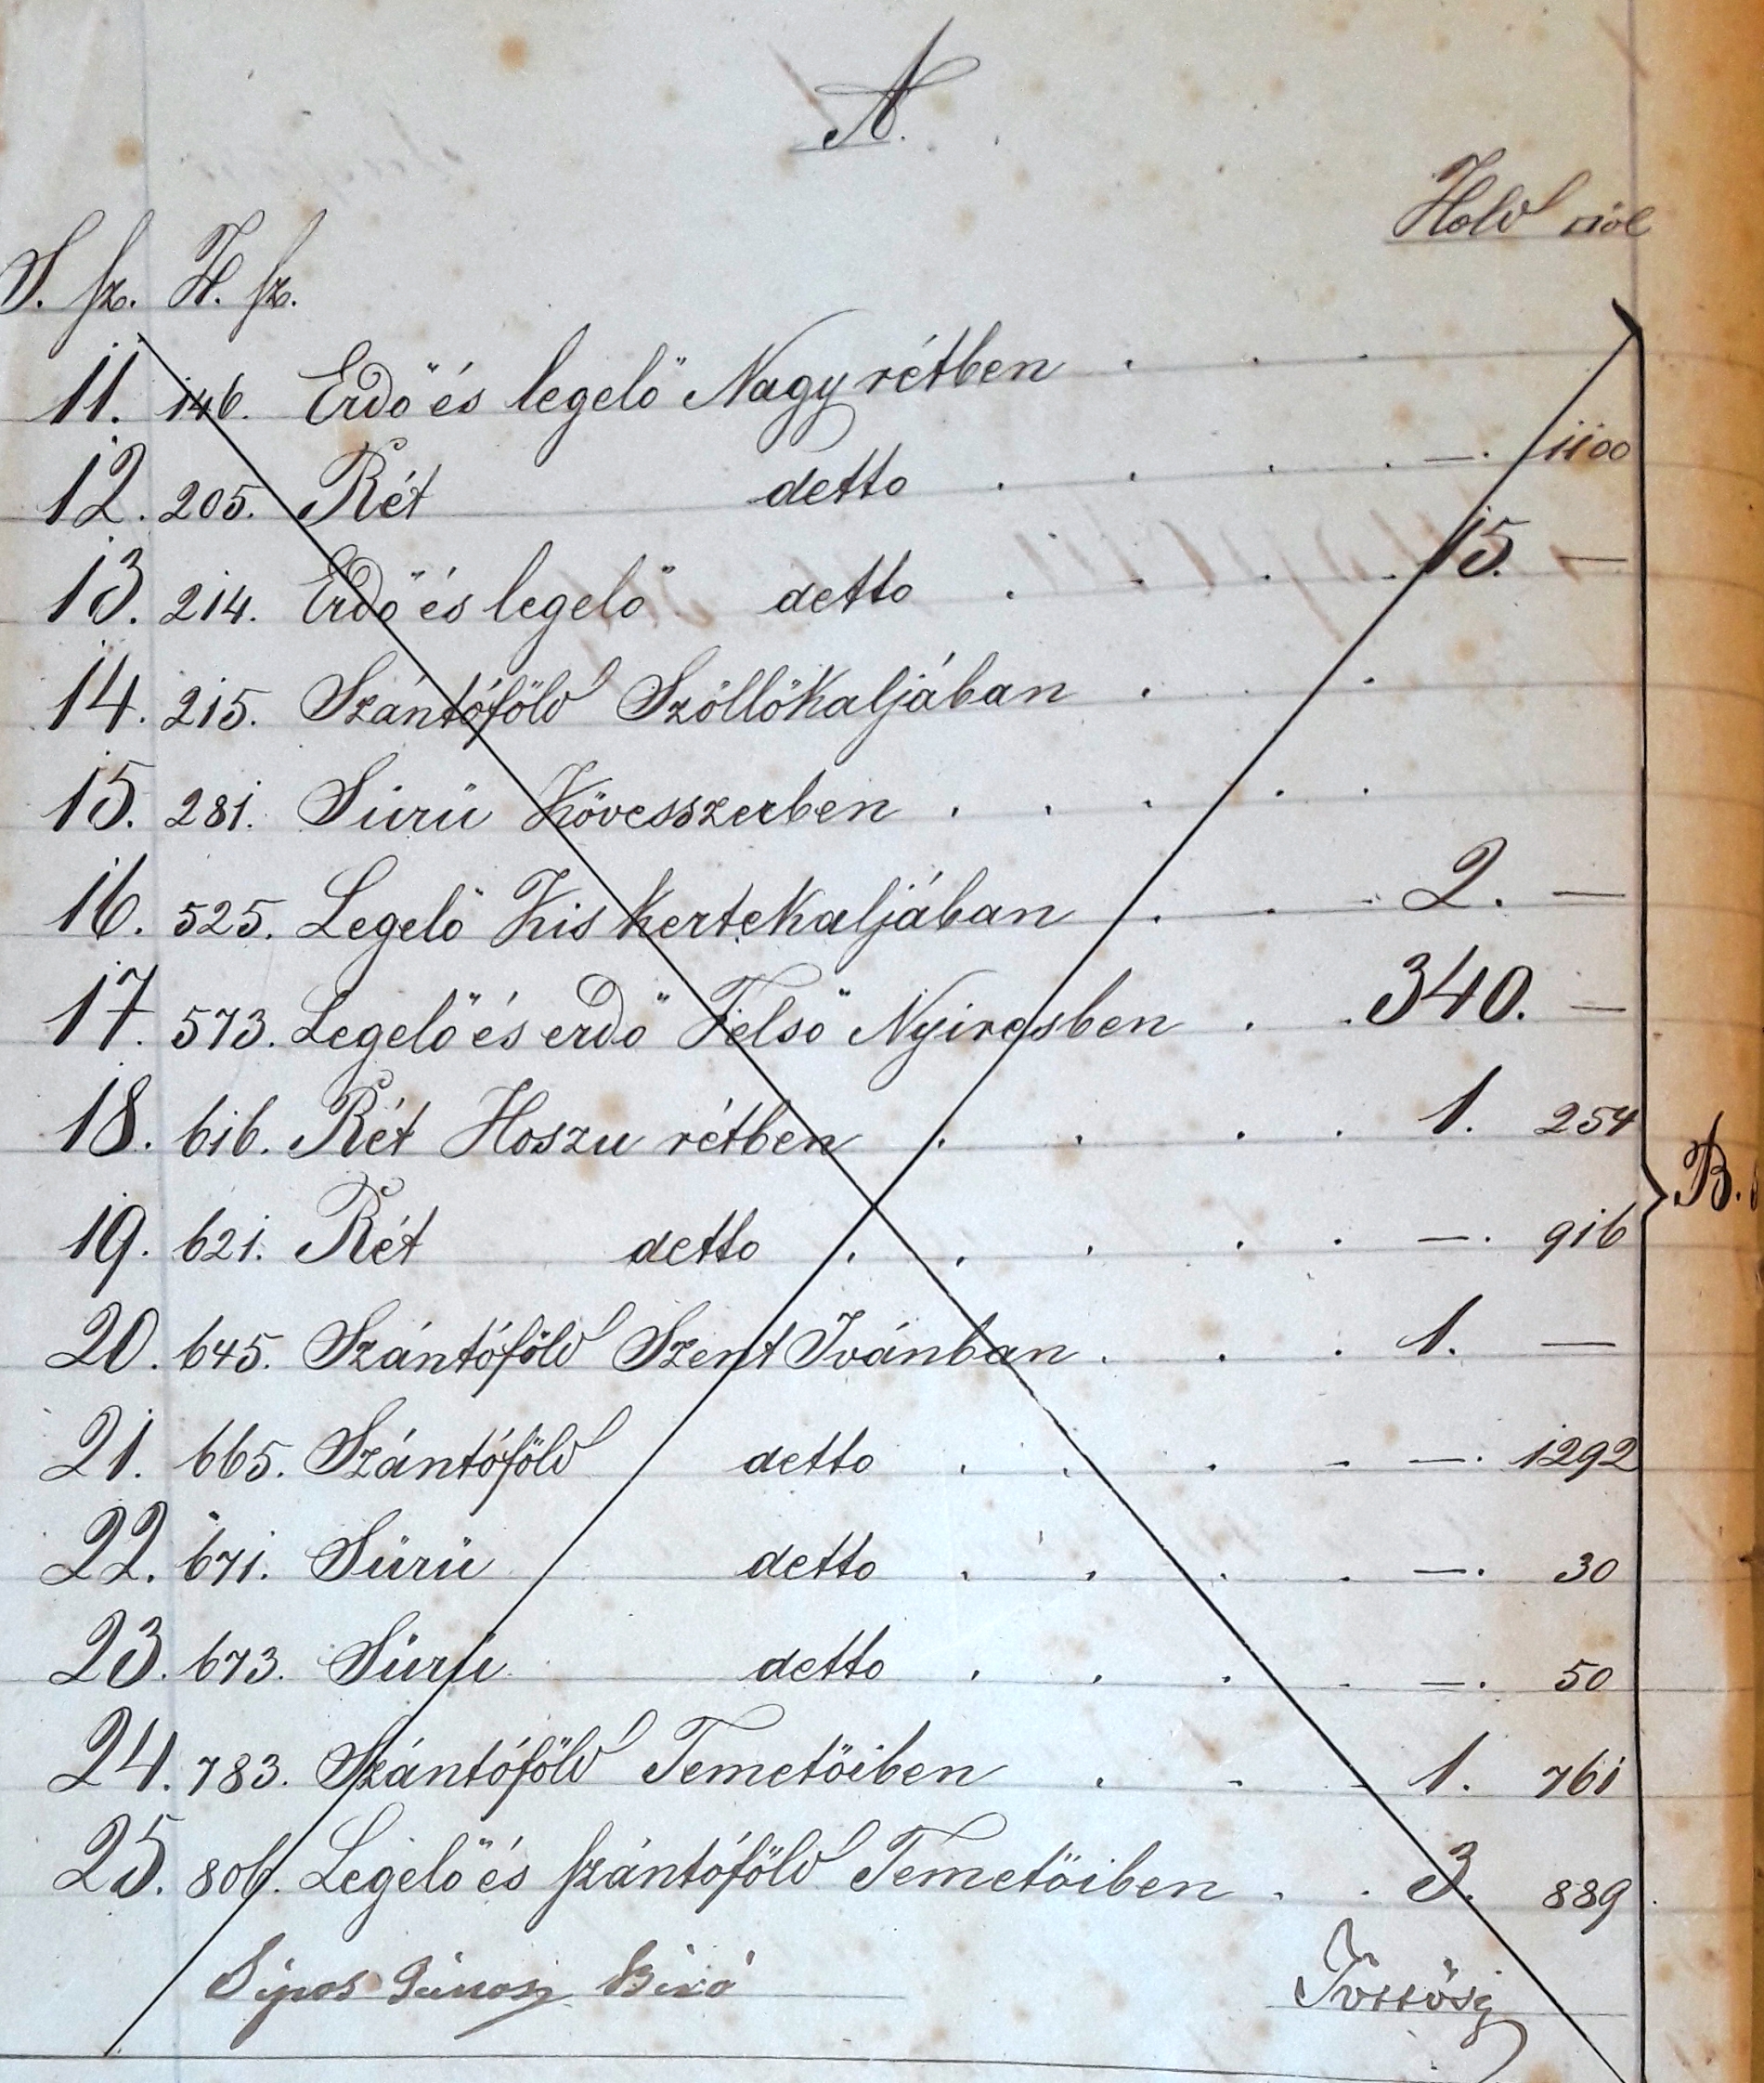 A.
Hold □öl
S. sz. H. sz.
11. 146. Erdő és legelő Nagy rétben . . .
12. 205. Rét detto . . . . —. 1100
13. 214. Erdő és legelő detto . . . . 15. —
14. 215. Szántóföld Szőllőkaljában . . .
15. 281. Sürü Kövesszerben . . . . .
16. 525. Legelő Kis kertekaljában . . . 2. —
17. 573. Legelő és erdő Felső Nyiresben . . 340. —
18. 616. Rét Hoszu rétben . . . . 1. 254
19. 621. Rét detto . . . . . —. 916
20. 645. Szántóföld Szent Ivánban . . . 1. —
21. 665. Szántóföld detto . . . . —. 1292
22. 671. Sürü detto . . . . —. 30
23. 673. Sürü detto . . . . —. 50
24. 783. Szántóföld Temetőiben . . . 1. 761
25. 806. Legelő és szántóföld Temetőiben . . 3. 889
B.
Sipos János Biró